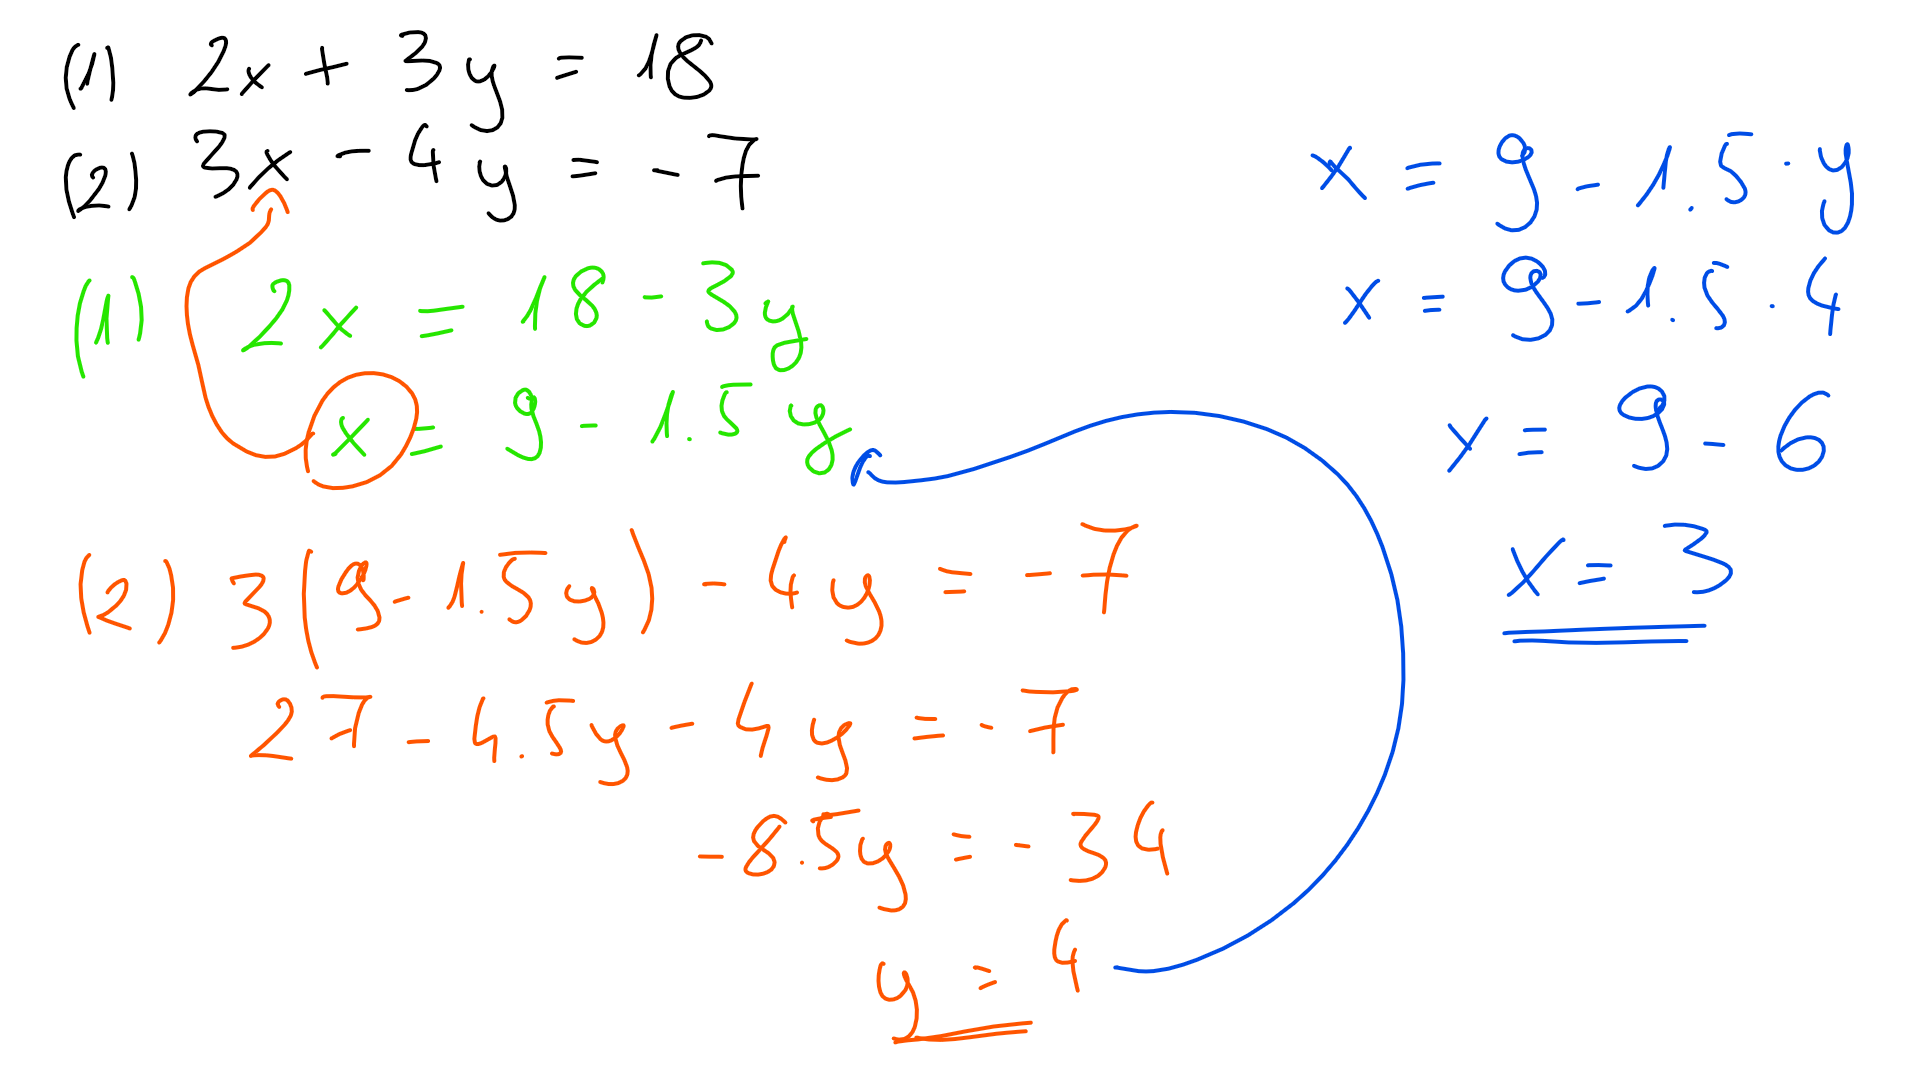 (1) 2x + 3y = 18
(2) 3x - 4y = -7
(1) 2x = 18 - 3y
x = 9 - 1.5y
(2) 3(9 - 1.5y) - 4y = -7
27 - 4.5y - 4y = -7
-8.5y = -34
y = 4
x = 9 - 1.5 · y
x = 9 - 1.5 · 4
x = 9 - 6
x = 3